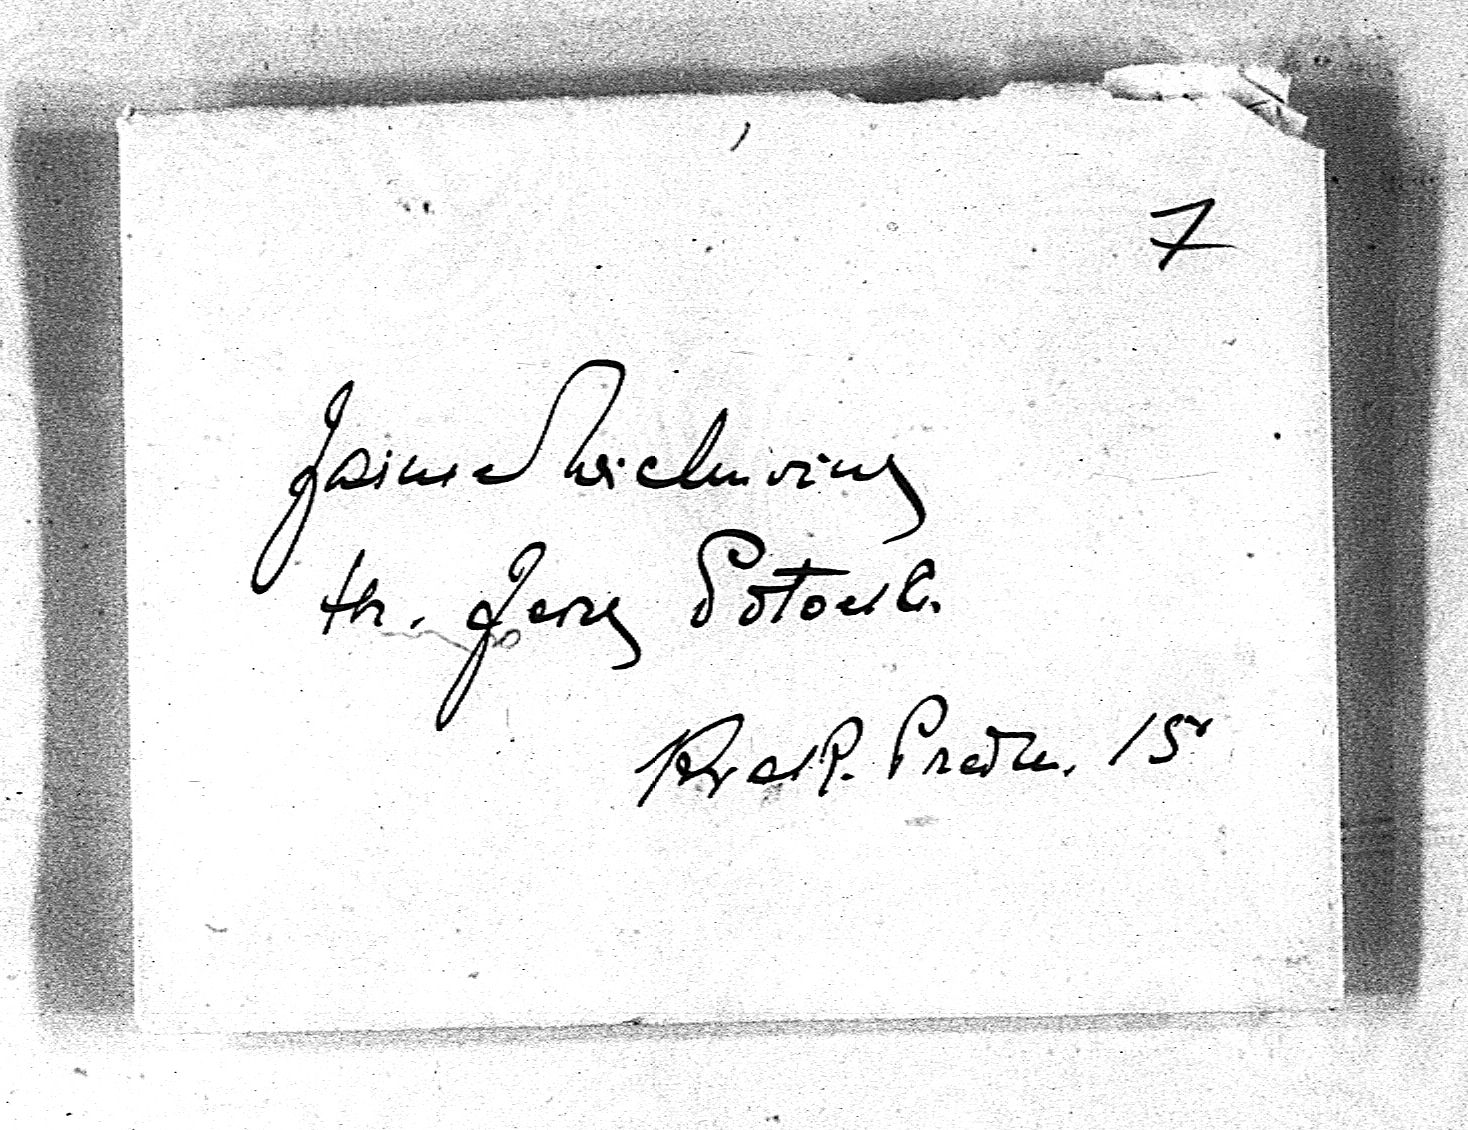 7
Jaśnie Wielmożny
Hr. Jerzy Potocki
Krak. Przedm. 15